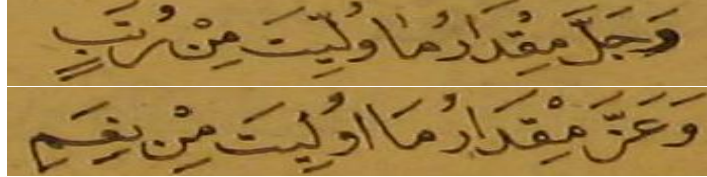 وَجَلَّ مِقْدَارُ مَا وُلِّيتَ مِنْ رُتَبٍ
وَعَزَّ مِقْدَارُ مَا اُولِيتَ مِنْ نِعَمِ